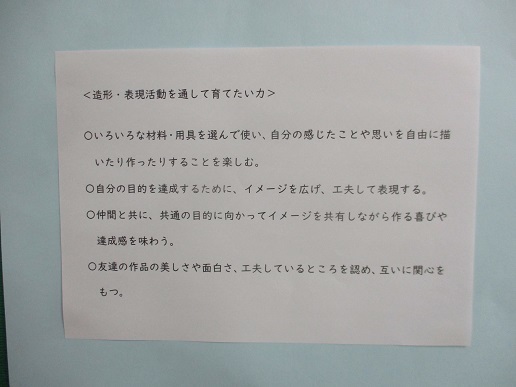 ＜造形・表現活動を通して育てたい力＞
○いろいろな材料・用具を選んで使い、自分の感じたことや思いを自由に描
いたり作ったりすることを楽しむ。
○自分の目的を達成するために、イメージを広げ、工夫して表現する。
○仲間と共に、共通の目的に向かってイメージを共有しながら作る喜びや
達成感を味わう。
○友達の作品の美しさや面白さ、工夫しているところを認め、互いに関心を
もつ。